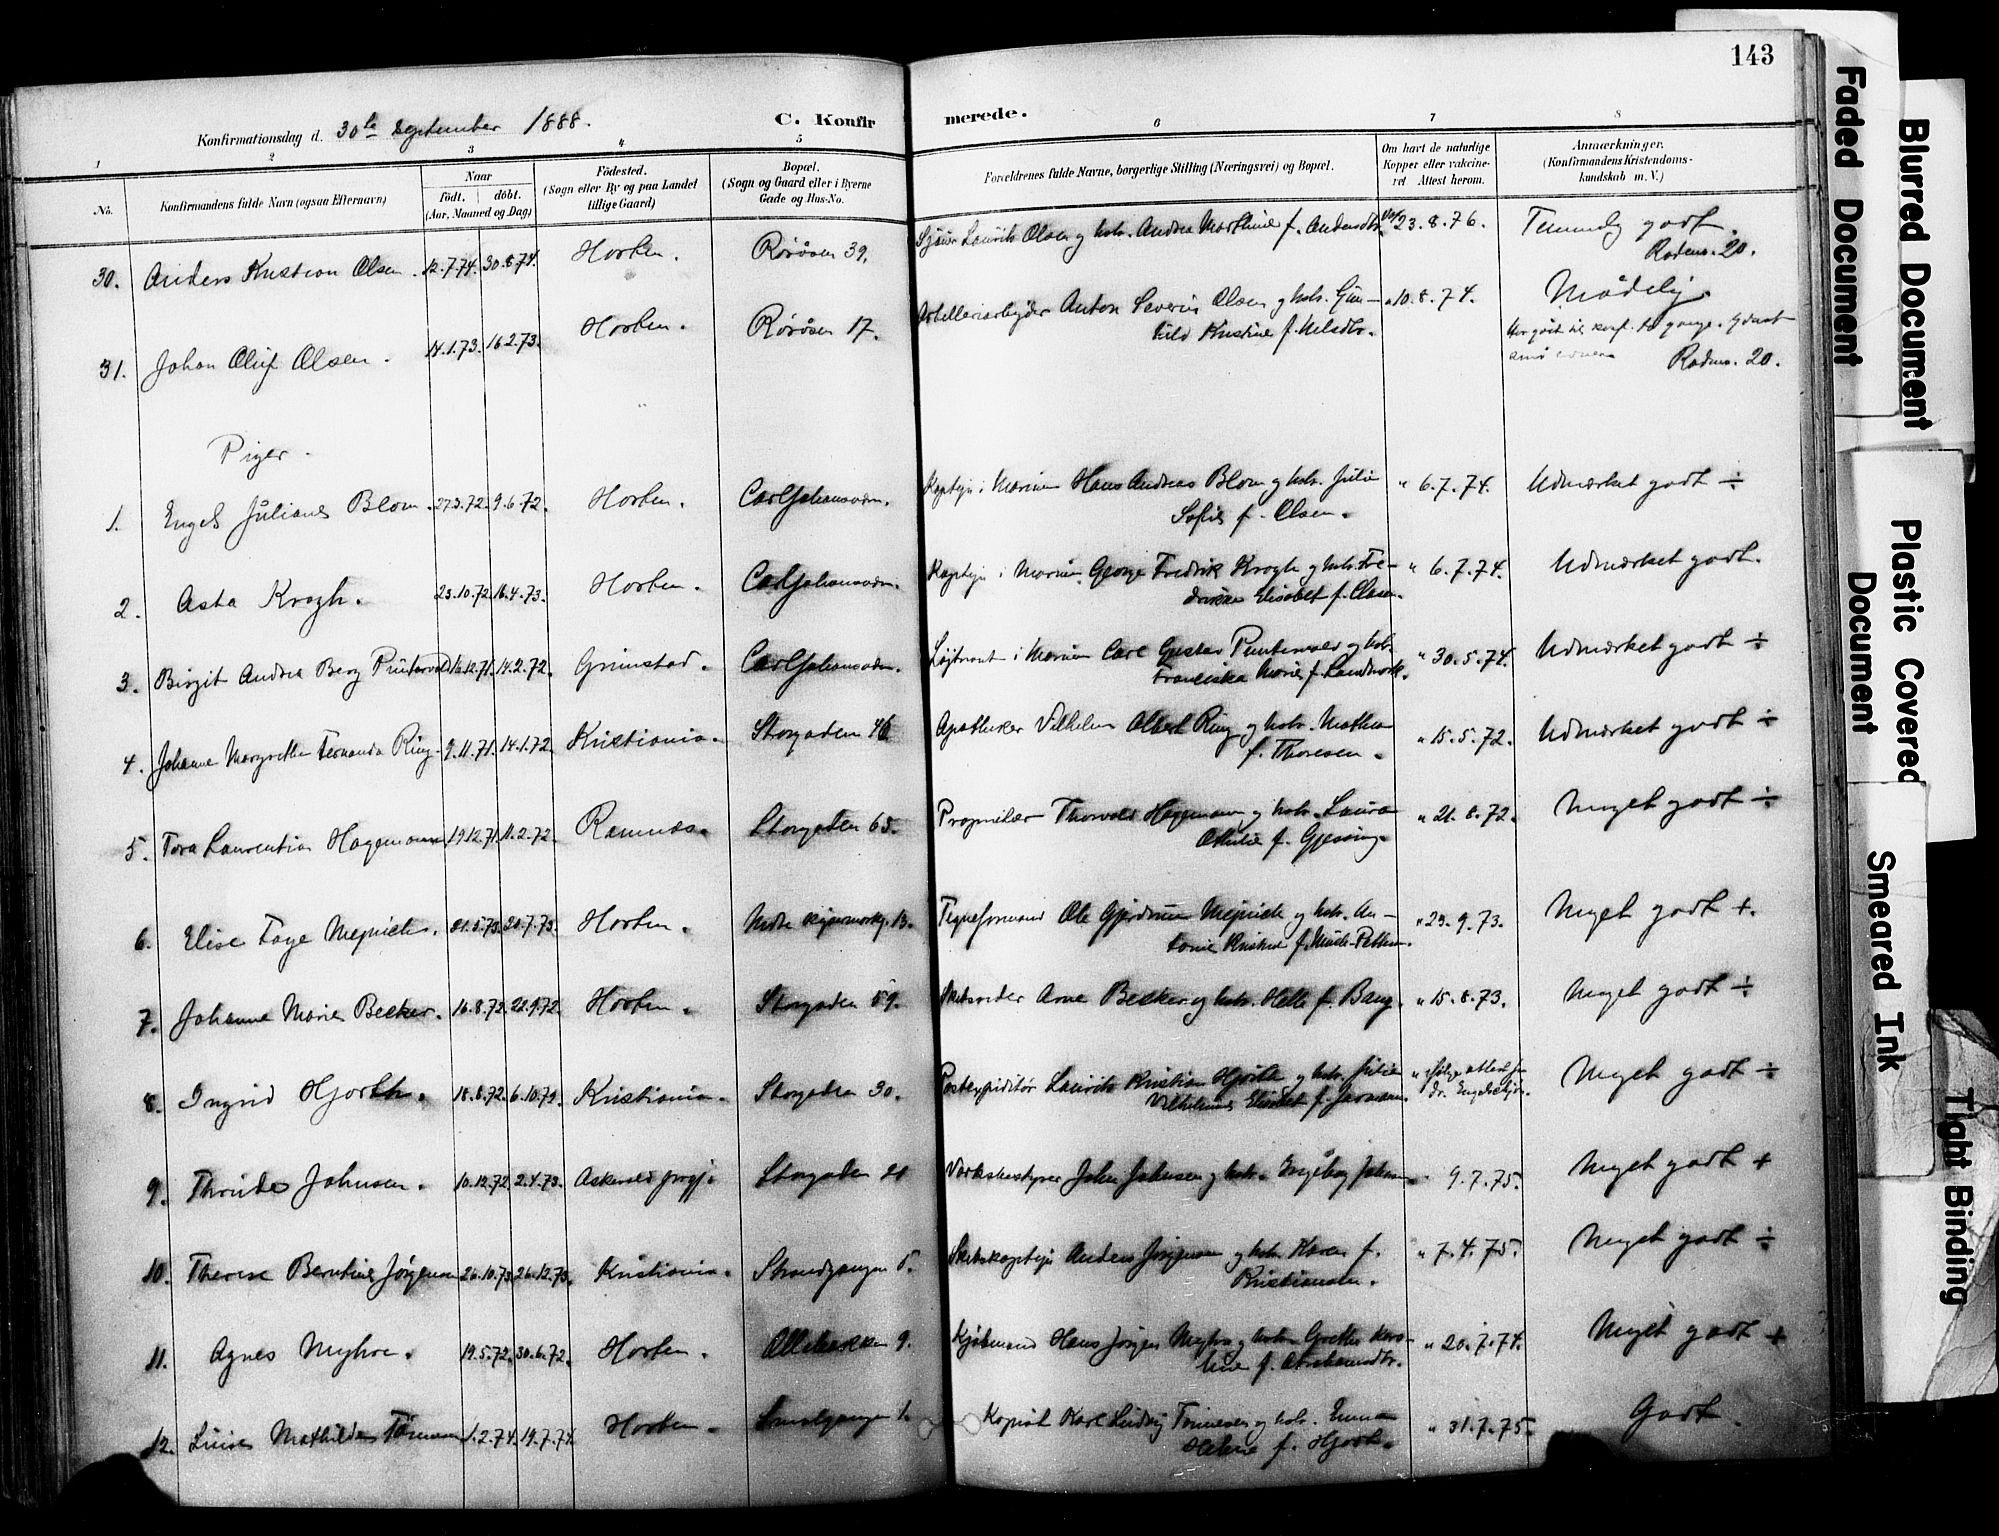 143
Konfirmationsdag d. 30te September 1888.
C. Konfirmerede.
1 2 3 4 5 6 7 8
No.
Konfirmandens fulde Navn (ogsaa Efternavn)
Naar
født. døbt.
(Aar, Maaned og Dag)
Fødested.
(Sogn eller By og paa Landet
tillige Gaard)
Bopæl.
(Sogn og Gaard eller i Byerne
Gade og Hus-No.
Forældrenes fulde Navne, borgerlige Stilling (Næringsvei) og Bopæl.
Om havt de naturlige
Kopper eller vakcine-
ret Attest herom.
Anmærkninger.
(Konfirmandens Kristendoms-
kundskab m. V.)
30. Anders Kristian Olsen. 12.7.74. 30.8.74. Horten. Rørøsen 39. Laurits Olsen og hstr. Andrea Marthine f. Andersdtr. 23.8.76. Temmelig godt.
Rodens. 20.
31. Johan Oluf Olsen. 14.1.73. 16.2.73. Horten. Rørøsen 17. Artilleriarbejder Anton Severin Olsen og hstr. Gun-
hild Kristine f. Nilsdtr. " 10.8.74. Mådelig.
Rodens. 20.
Piger.
1. Engel Juliane Blom. 27.3.72. 9.6.72. Horten. Carljohansværn. Kaptejn i Marinen Hans Andreas Blom og hstr. Julie
Sofie f. Olsen. " 6.7.74. Udmærket godt ÷
2. Asta Krogh. 23.10.72. 16.4.73. Horten. Carljohansværn. Kaptejn i Marinen George Fredrik Krogh og hstr. Fre-
drikke Elisabet f. Olsen. " 6.7.74. Udmærket godt.
3. Birgit Andrea Berg Puntervold 16.12.71. 14.2.72. Grimstad. Carljohansværn. Løjtnant i Marinen Carl Gustav Puntervold og hstr.
Franciska Marie f. Landmark. " 30.5.74. Udmærket godt ÷
4. Johanne Margrethe Fernanda Ring. 9.11.71. 14.1.72. Kristiania. Storgaden 46 Apotheker Vilhelm Albert Ring og hstr. Mathea
f. Thoresen. " 15.5.72. Udmærket godt ÷
5. Tora Laurentia Hagemann 19.12.71. 11.2.72. Ramnæs. Storgaden 65. Proprietær Thorvald Hagemann og hstr. Laura
Othilie f. Gjessing. " 21.8.72. Meget godt ÷
6. Elise Faye Mejnich. 21.5.73. 20.7.73. Horten. Tegneformand Ole Gjerdrum Mejnich og hstr. An-
tonie f. " 23.9.73. Meget godt +.
7. Johanne Marie Becker. 16.8.72. 22.9.72. Horten. Storgaden 59. Arne Becker og hstr. Helle f. Bang. " 15.8.73. Meget godt ÷
8. Ingrid Hjorth. 18.8.72. 6.10.72. Kristiania. Storgaden 30. Postexpeditør Laurits Kristian Hjorth og hstr. Julie
Vilhelmine Elisabet f. " ifølge attest fra
dr. Meget godt ÷
9. Thrude Johnsen. 10.12.72. 2.4.73. Storgaden 21 Værksbestyrer John Johnsen og hstr. Ingeborg " 9.7.75. Meget godt +
10. Therese Berntine Jørgensen 26.10.73. 26.12.73. Kristiania. Strandgangen 5. Skibskaptejn Anders Jørgensen og hstr. Karen f.
Kristiansen. " 7.4.75. Meget godt ÷
11. Agnes Myhre. 19.5.72. 30.6.72. Horten. 9. Kjøbmand Hans Jørgen Myhre og hstr. Grethe Karo-
line f. Abrahamsdtr. " 20.7.74. Meget godt +
12. Luise Mathilde Tønnesen 1.2.74. 19.7.74. Horten. 1. Kopist Karl Ludvig Tønnesen og hstr. Emma
Helene f. Hjorth. " 31.7.75. Godt.
Faded Document
Blurred Document
Plastic Covered Document
Smeared Ink
Tight Binding